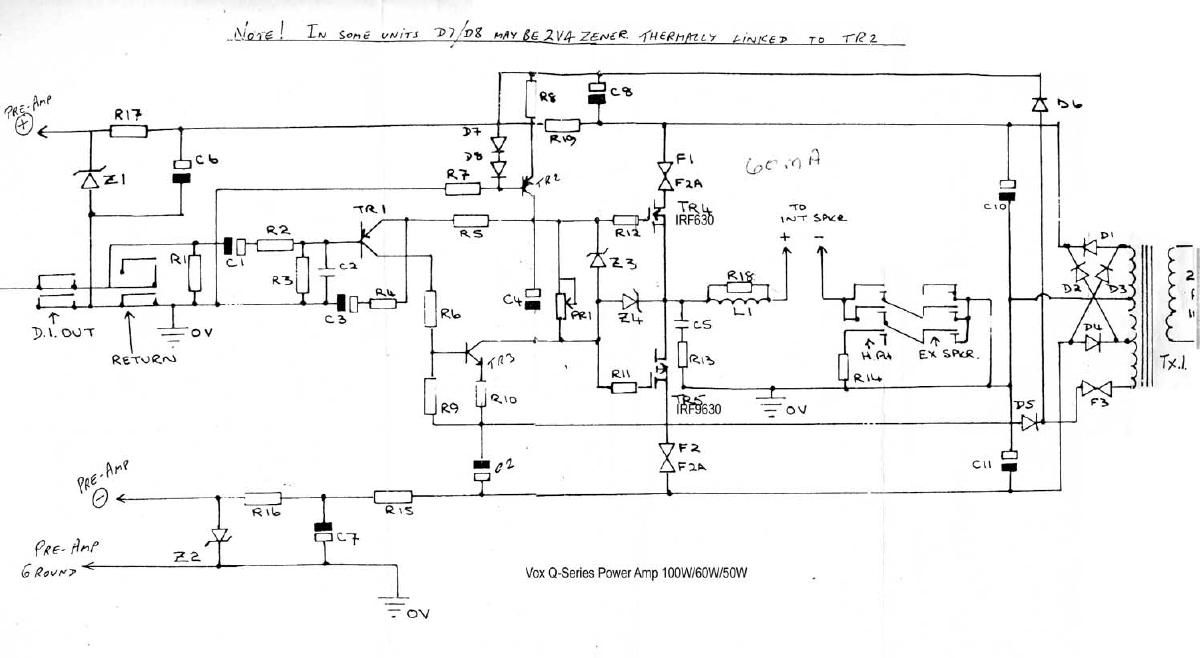 NOTE! IN SOME UNITS D7/D8 MAY BE 2VA ZENER THERMALLY LINKED TO TR2
PRE-AMP
+
R17
C6
Z1
D7
D8
R8
C8
R19
D6
R7
TR2
F1
F2A
60mA
TR4
IRF630
C10
TR1
R5
R12
TO
INT SPKR
+
−
R1
C1
R2
R3
C2
C3
R4
C4
PR1
Z3
Z4
R18
L1
D1
D2
D3
D4
2
TX.1.
D.I. OUT
RETURN
0V
R6
TR3
R9
R10
R11
TR5
IRF9630
C5
R13
R14
EX SPKR.
0V
D5
F3
F2
F2A
C11
PRE-AMP
−
R16
R15
Z2
C7
PRE-AMP
GROUND
0V
Vox Q-Series Power Amp 100W/60W/50W